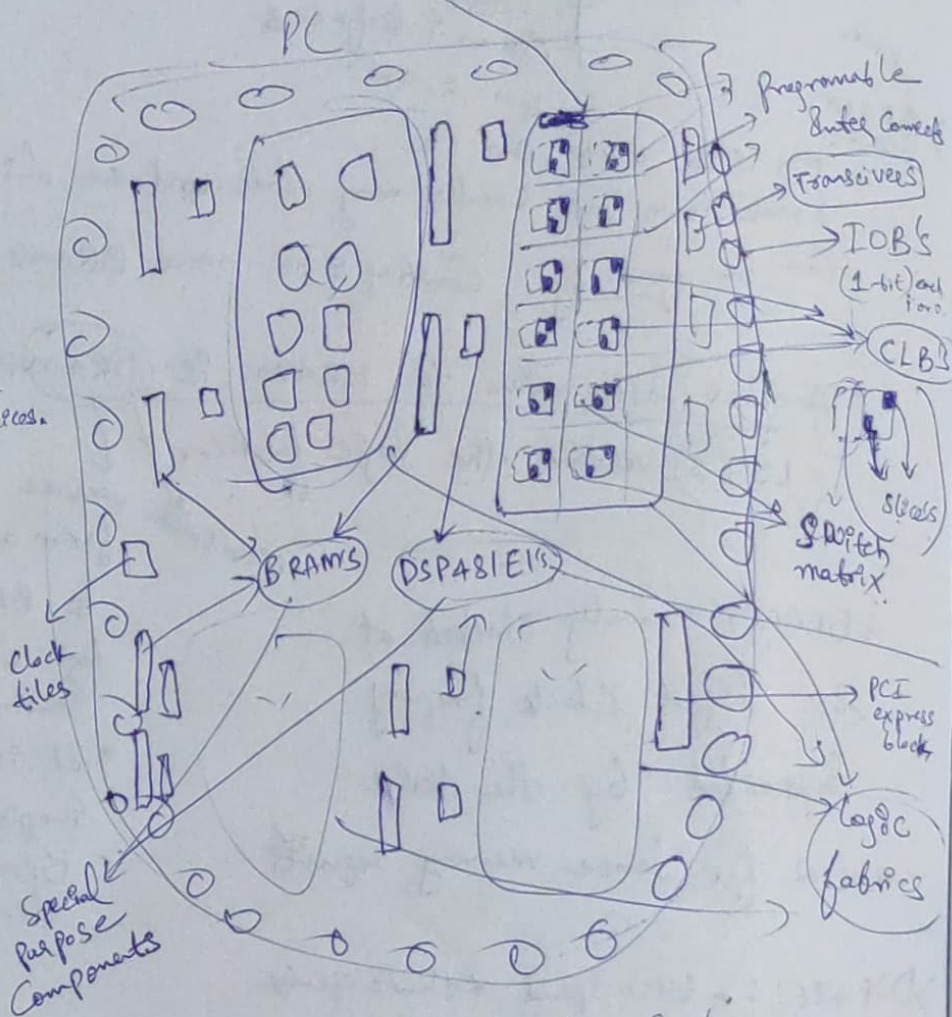 PC
Programable
Inter Connects
Transeivers
IOB's
(1-bit) each
CLBs
Slices
Switch
matrix
BRAM'S
DSP481E1's
Clock
tiles
PCI
express
block
Logic
fabrics
Special
purpose
Components